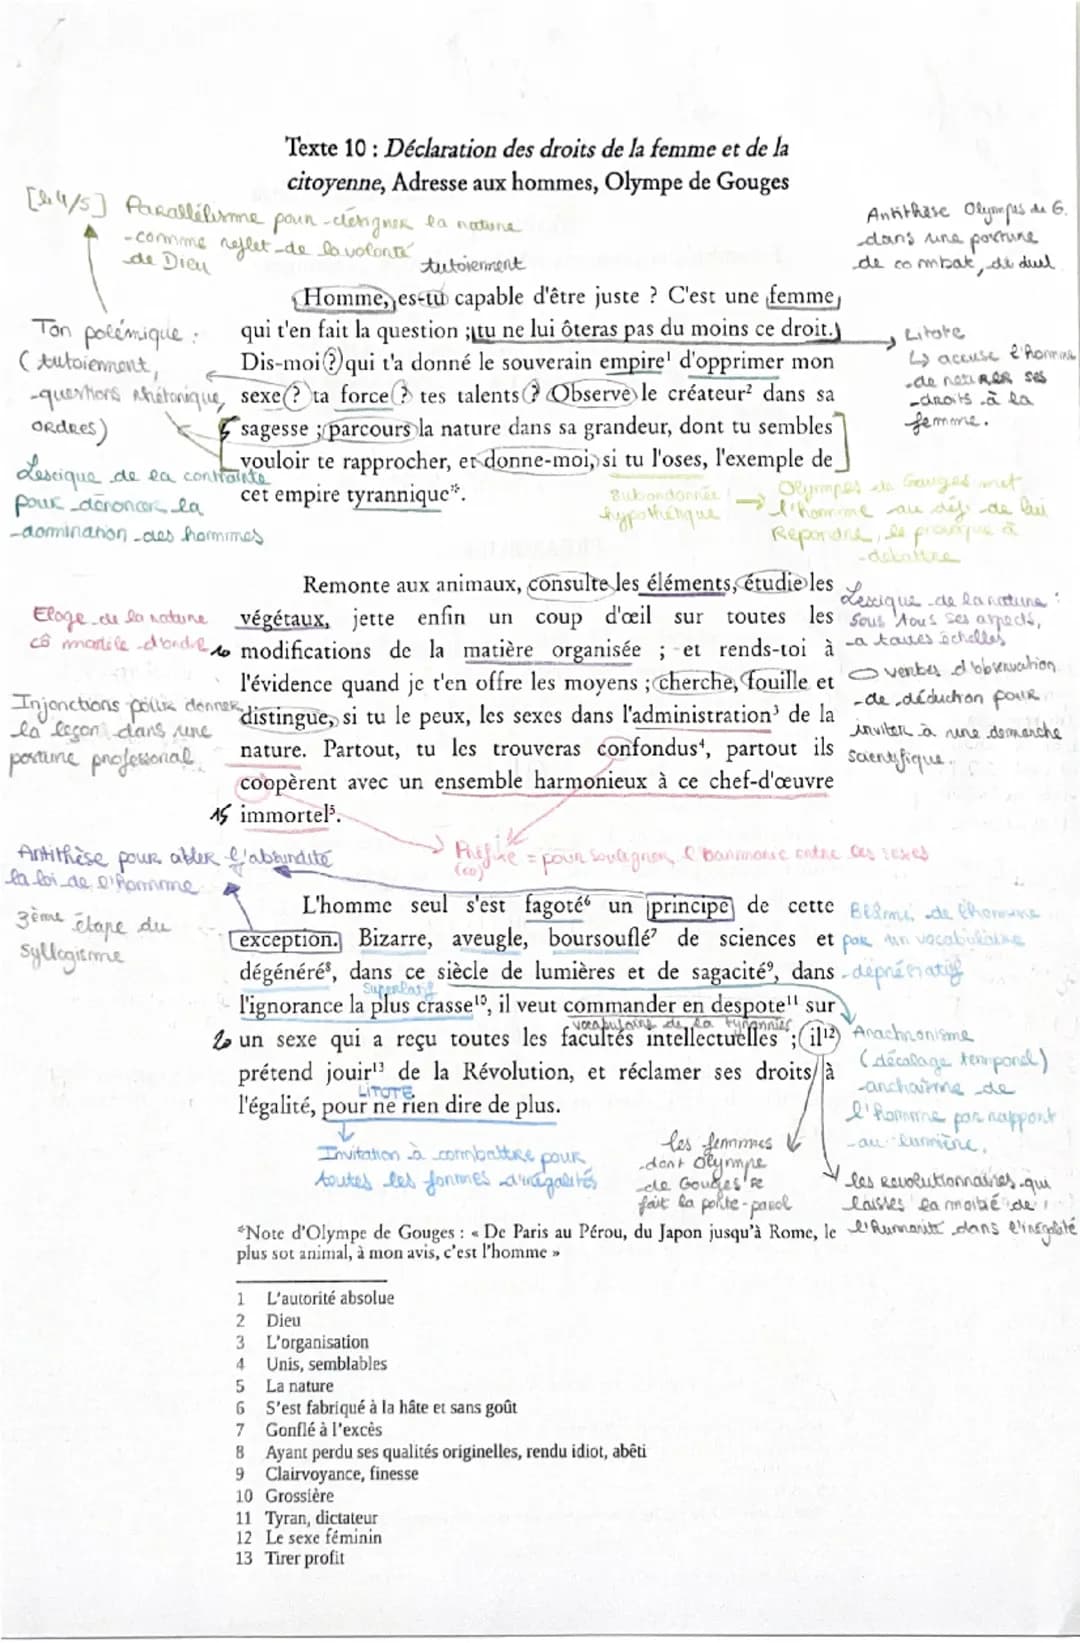 Texte 10 : Déclaration des droits de la femme et de la
citoyenne, Adresse aux hommes, Olympe de Gouges
[l.4/5] Parallélisme pour désigner la nature
comme reflet de la volonté
de Dieu
tutoiement
Antithèse Olympes de G.
dans une posture
de combat, de duel
Homme, es-tu capable d'être juste ? C'est une femme
qui t'en fait la question ; tu ne lui ôteras pas du moins ce droit.
Dis-moi ? qui t'a donné le souverain empire¹ d'opprimer mon
sexe ? ta force ? tes talents ? Observe le créateur² dans sa
5 sagesse ; parcours la nature dans sa grandeur, dont tu sembles
vouloir te rapprocher, et donne-moi, si tu l'oses, l'exemple de
cet empire tyrannique*.
Ton polémique :
( tutoiement,
questions rhétorique,
ORDRES)
Lexique de la contrainte
pour dénoncer la
domination des hommes
Litote
↳ accuse l'homme
de retiRER ses
droits à la
femme.
Subordonnée
hypothétique
→ Olympes de Gouges met
l'homme au défi de lui
Repondre, le provoque à
debattre
Remonte aux animaux, consulte les éléments, étudie les
végétaux, jette enfin un coup d'œil sur toutes les
10 modifications de la matière organisée ; et rends-toi à
l'évidence quand je t'en offre les moyens ; cherche, fouille et
distingue, si tu le peux, les sexes dans l'administration³ de la
nature. Partout, tu les trouveras confondus⁴, partout ils
coopèrent avec un ensemble harmonieux à ce chef-d'œuvre
15 immortel⁵.
Eloge de la nature
cô modèle d'ordre
Injonctions pour donner
la leçon dans une
posture professoral
Lexique de la nature :
sous tous ses aspects,
a toutes échelles
verbes d'observation
de déduction pour
inviter à une démarche
scientifique.
Préfixe = pour souligner l'harmonie entre les sexes
(co)
Antithèse pour
la loi de l'homme
3ème étape du
syllogisme
L'homme seul s'est fagoté⁶ un principe de cette
exception. Bizarre, aveugle, boursouflé⁷ de sciences et
dégénéré⁸, dans ce siècle de lumières et de sagacité⁹, dans
Superlatif
l'ignorance la plus crasse¹⁰, il veut commander en despote¹¹ sur
vocabulaire de la tyrannies
20 un sexe qui a reçu toutes les facultés intellectuelles ; il¹²
prétend jouir¹³ de la Révolution, et réclamer ses droits à
LITOTE
l'égalité, pour ne rien dire de plus.
de l'homme
par un vocabulaire
dépréciatif
Anachronisme
(décalage temporel)
de
l'homme par rapport
au lumière.
Invitation à combattre pour
toutes les formes d'inégalités
les femmes
dont Olympe
de Gouges se
fait la porte-parol
les Revolutionnaires qui
laisses la moitié de
l'Humanité dans l'inégalité
*Note d'Olympe de Gouges : « De Paris au Pérou, du Japon jusqu'à Rome, le
plus sot animal, à mon avis, c'est l'homme »
1 L'autorité absolue
2 Dieu
3 L'organisation
4 Unis, semblables
5 La nature
6 S'est fabriqué à la hâte et sans goût
7 Gonflé à l'excès
8 Ayant perdu ses qualités originelles, rendu idiot, abêti
9 Clairvoyance, finesse
10 Grossière
11 Tyran, dictateur
12 Le sexe féminin
13 Tirer profit